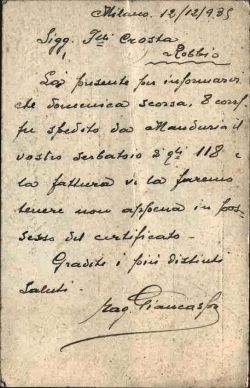 Milano. 12/12/935
Sigg. F.lli Crosta
Robbio
La presente per informarvi
che domenica scorsa, 8 corr,
fu spedito da Manduria il
vostro serbatoio di q.li 118 e
la fattura ve la faremo
tenere non appena in pos-
sesso del certificato.
Gradite i più distinti
saluti.
Rag.